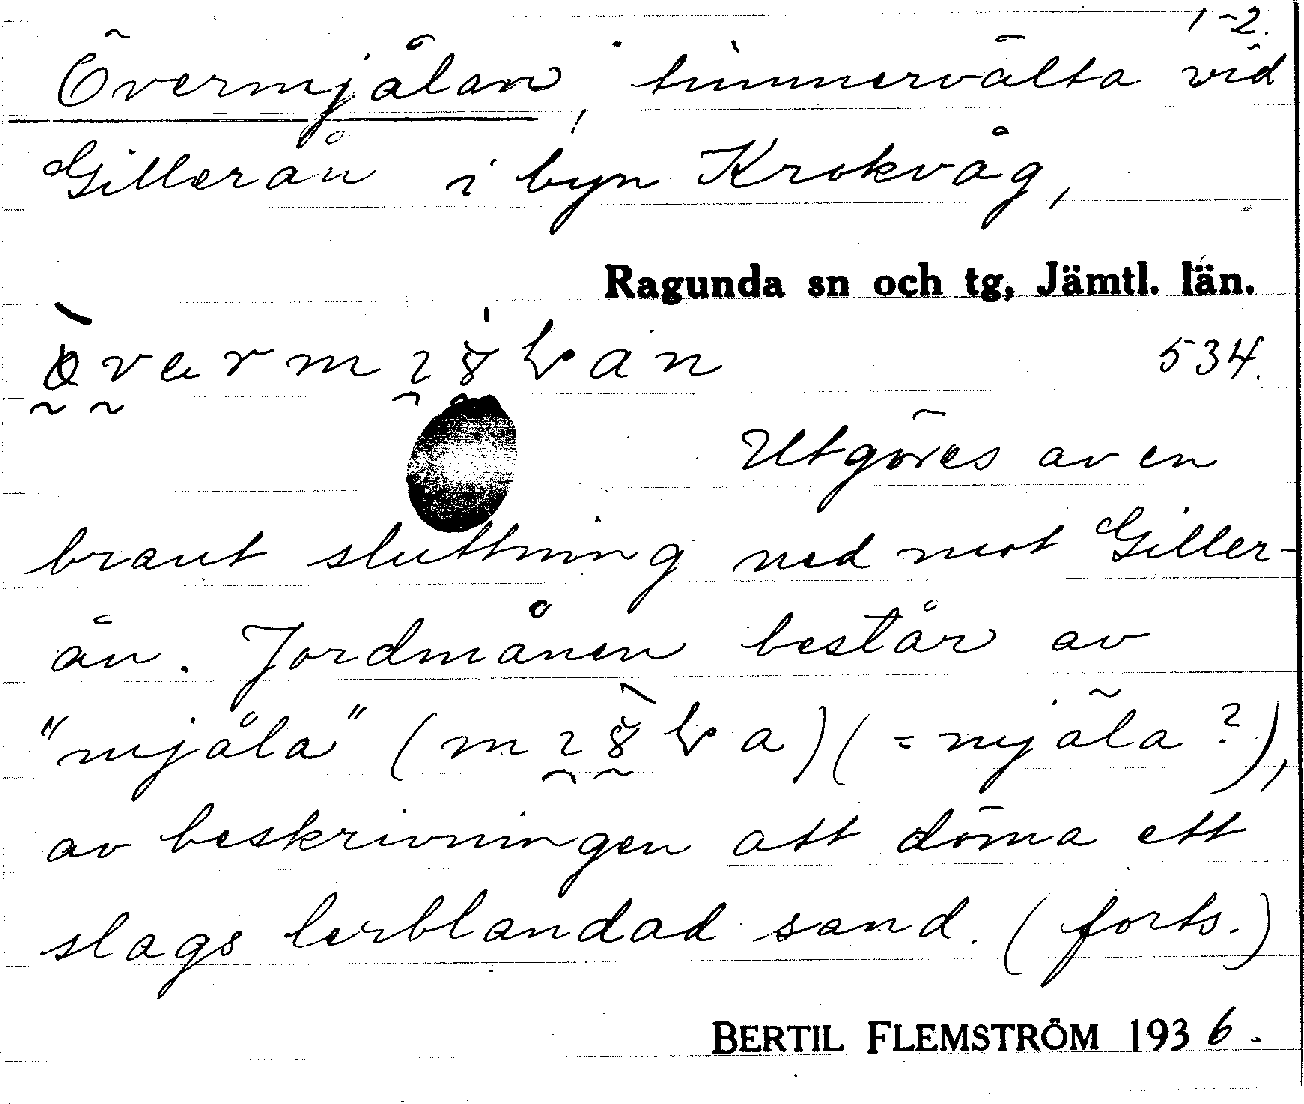 1-2.
Övermjålan, timmervälta vid
Gillerån i byn Krokvåg,
Ragunda sn och tg, Jämtl. län.
534.
Utgöres av en
brant sluttning ned mot Giller-
ån. Jordmånen består av
"mjåla" (= mjäla?),
av beskrivningen att döma ett
slags lerblandad sand. (forts.)
BERTIL FLEMSTRÖM 1936.